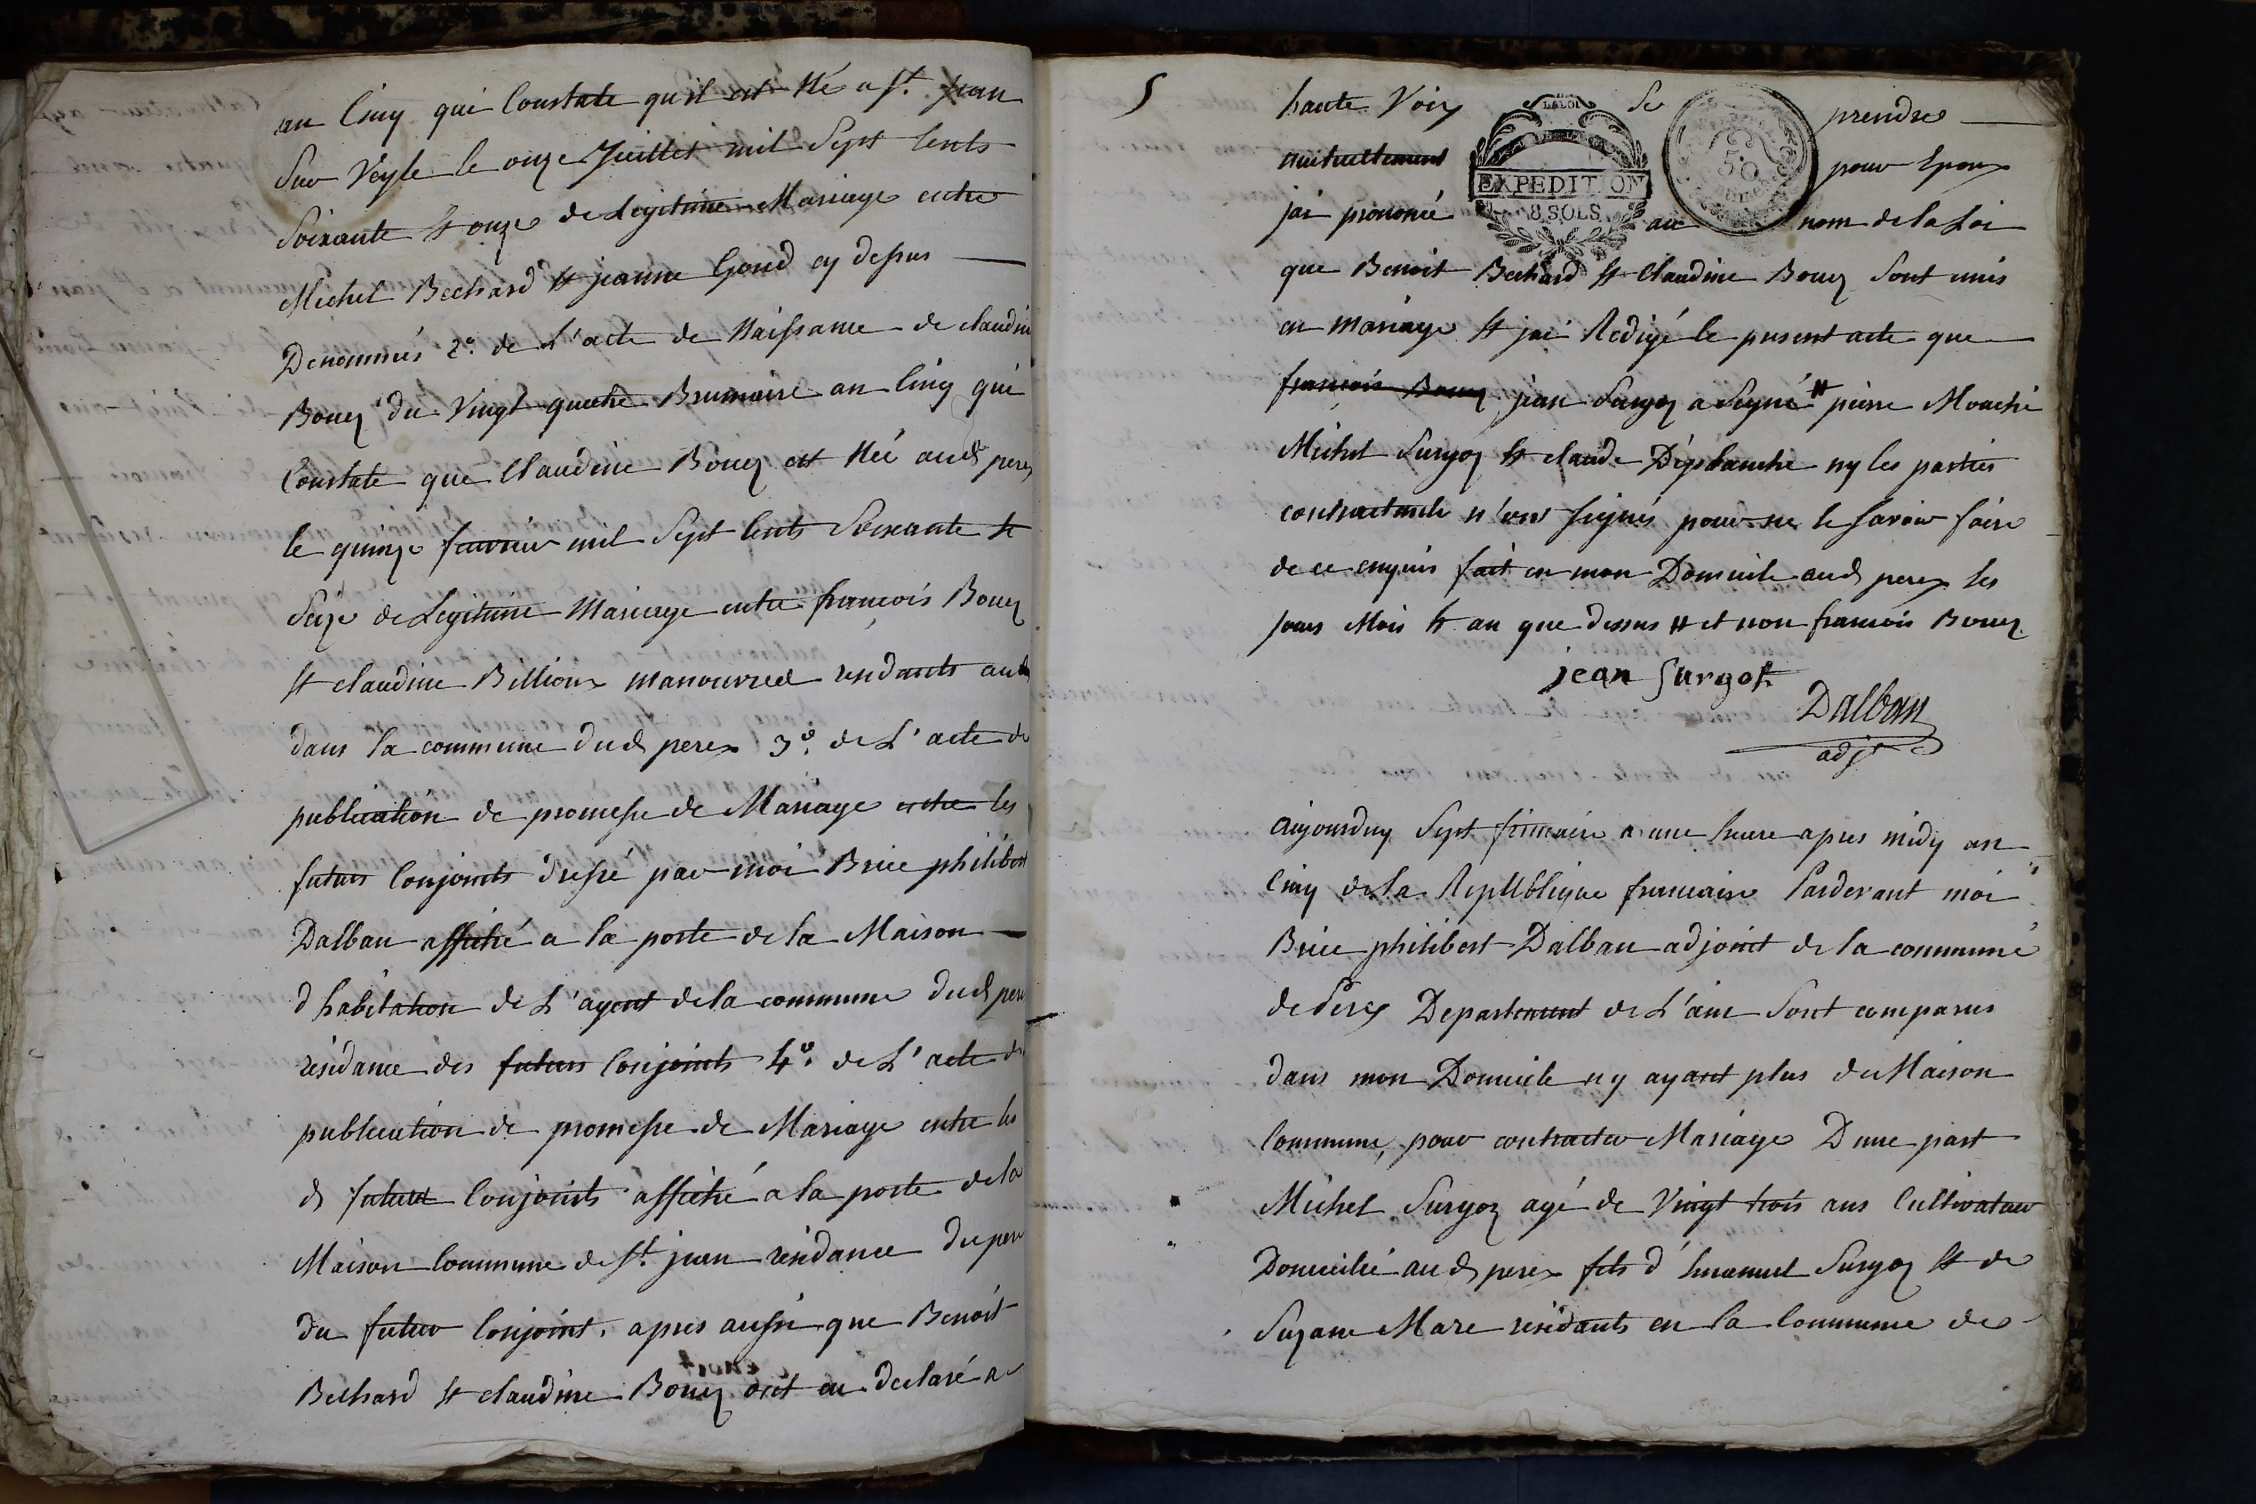 an Cinq qui Constate qu'il est Né a St. jean
Sur Veyle le onze Juillet mil Sept Cents
Soixante & onze de Legitime Mariage entre
Michel Bechard & jeanne Goud cy dessus
Denommés 2°. de L'acte de Naissance de claudine
Bouez du Vingt quatre Brumaire an Cinq qui
Constate que Claudine Bouez est Née aud perex
le quinze fevrier mil Sept Cents Soixante &
Seize de Legitime Mariage entre françois Bouez
& claudine Billioux manouvres residants
dans la commune dud perex 3°. de L'acte de
publication de promesse de Mariage entre les
futurs Conjoints dressé par moi Brice philibert
Dalban affiché a la porte de la Maison
d'habitation de L'agent de la commune dud perex
résidance des futurs Conjoints 4°. de L'acte de
publication de promesse de Mariage entre les
d futurs Conjoints affiché a la porte de la
Maison Commune de St. jean residance du pere
du futur Conjoint. apres aussi que Benoit
Bechard & claudine Bouez ont eu declaré a
5
haute Voix Se prendre
mutuellement pour Epoux
LA LOI
EXPEDITION
8 SOLS
50
jai prononcé au nom de la Loi
que Benoit Bechard & Claudine Bouez Sont unis
en Mariage & jai Redigé le present acte que
françois Bouez jean Surgoz a Signé # pierre Mouche
Michel Surgoz & claude Desplanche ny les parties
contractante n'ont signés pour ne le savoir faire
de ce enquis fait en mon Domicile aud perex les
jours Mois & an que dessus # et non francois Bouez
jean surgot
Dalban
adjt
Aujourduy Sept frimaire a une heure apres midy an
Cinq de la RepUblique francaise Pardevant moi
Brice philibert Dalban adjoint de la commune
de Perex Departement de L'ain Sont comparus
dans mon Domicile ny ayant plus de Maison
Commune, pour contracter Mariage D'une part
Michel Surgoz agé de Vingt trois ans Cultivateur
Domicilié aud perex fils d'Emanuel Surgoz & de
Suzane Mare residants en la Commune de